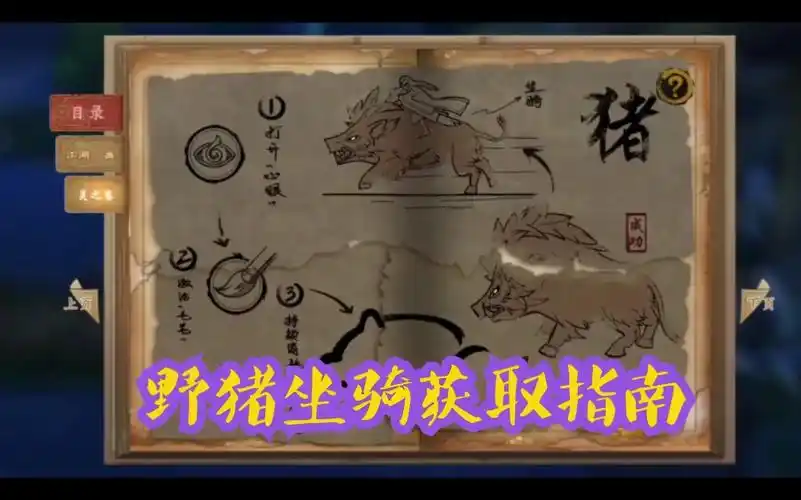 目录
江湖
灵之卷
①
打开"心眼"
坐骑
猪
?
成功
②
激活"毛笔"
③
上页
下页
野猪坐骑获取指南